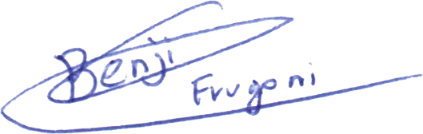 Benji
Frugoni